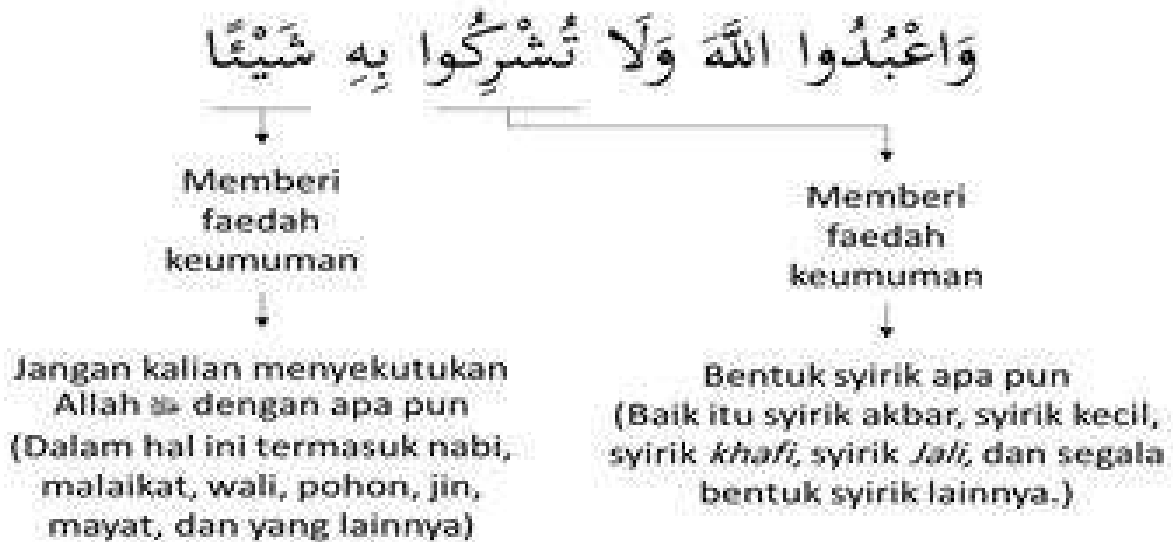 وَاعْبُدُوا اللَّهَ وَلَا تُشْرِكُوا بِهِ شَيْئًا
Memberi
faedah
keumuman
Jangan kalian menyekutukan
Allah ﷻ dengan apa pun
(Dalam hal ini termasuk nabi,
malaikat, wali, pohon, jin,
mayat, dan yang lainnya)
Memberi
faedah
keumuman
Bentuk syirik apa pun
(Baik itu syirik akbar, syirik kecil,
syirik khafi, syirik Jali, dan segala
bentuk syirik lainnya.)